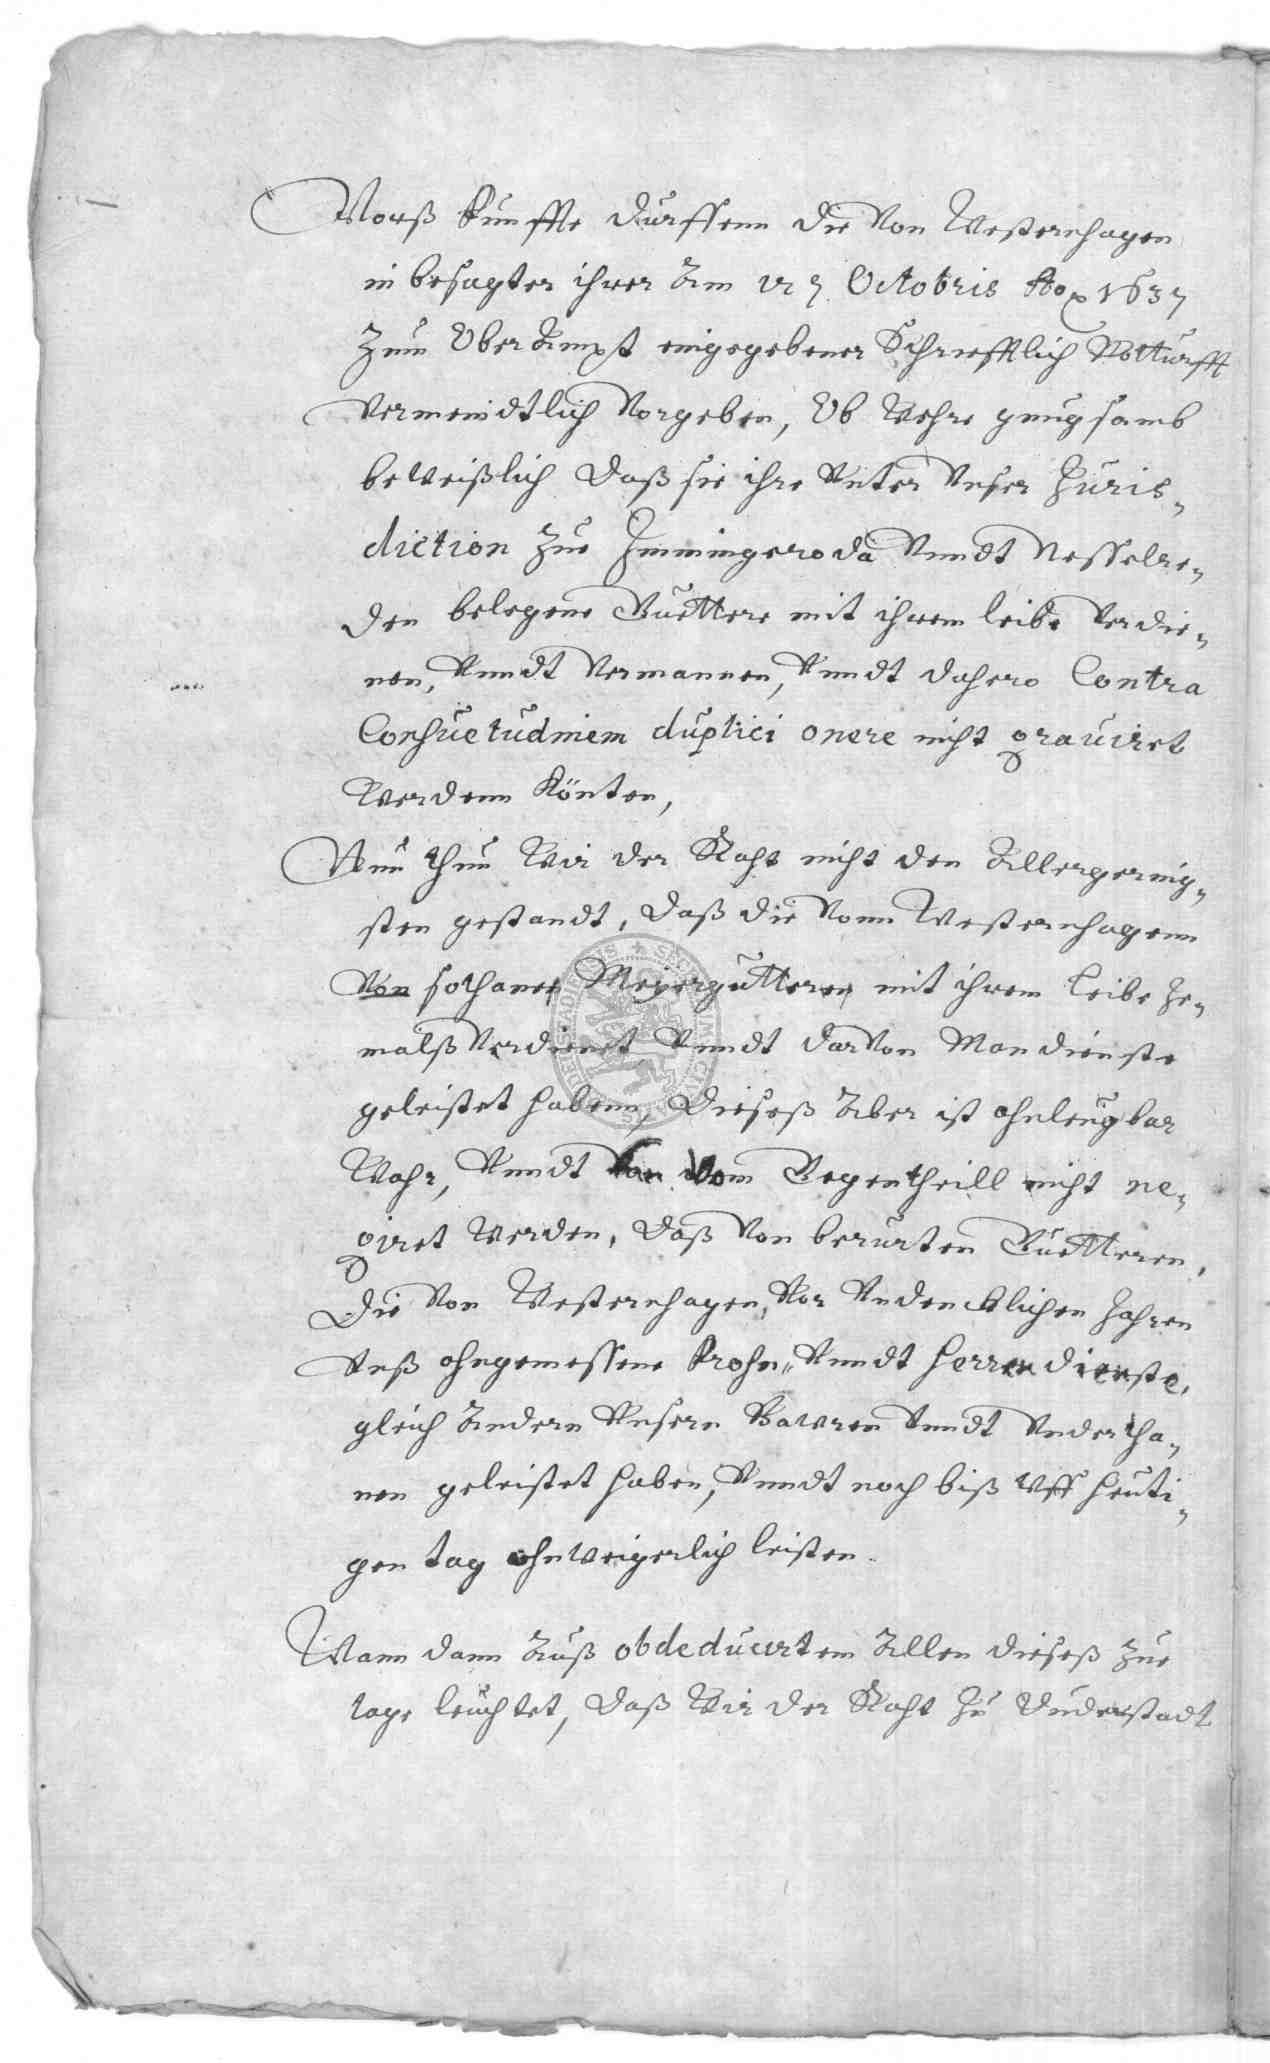 Vorß Künffte dürffenn die Von Westernhagen
in besagter ihrer Am 27. Octobris Ao 1637
Zum Ober Ampt eingegebener Schrifftlich Notturfft
Vermeindtlich Vorgeben, Ob Wehre gnugsamb
beWeißlich daß sie ihre Vnter Vnser Juris-
diction Zue Immingeroda Vnndt Nesselrö-
den belegene Guettere mit ihrem leibe Verdie-
nen, Vnndt Vermannen, Vnndt dahero Contra
Consuetudinem duplici onere nicht graviret
Werdenn Könten,
Nun thun Wir der Raht nicht den Allergering-
sten gestandt, daß die Vonn Westernhagenn
Von sothanen Meyergütteren mit ihrem Leibe je-
malß Verdienet Vnndt darVon Mandienste
geleistet habenn, dieses Aber ist ohnleugbar
Wahr, Vnndt Kan Vom Gegentheill nicht ne-
giret Werden, daß Von berürten Guetteren,
die Von Westernhagen, Vor Vndencklichen Jahren
Vnß ohngemessene Frohn- Vnndt Herrendienste,
gleich Andern Vnsern Bawren Vnndt Vndertha-
nen geleistet haben, Vnndt noch biß Vff heuti-
gen tag ohnWeigerlich leisten.
Wann dann Auß obdeducirtem Allen dieses Zue
tage leuchtet, daß Wir der Raht Zu Duderstadt